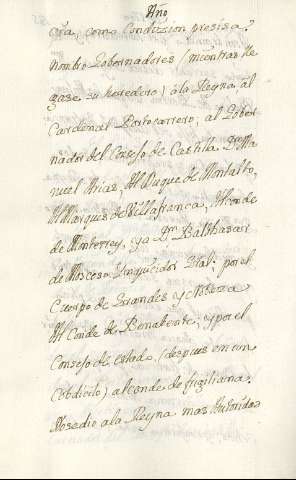 Año
cra, como Condizion presisa.
nombro Gobernadores (mientras lle
gase su heredero) à la Reyna, al
Cardenal Portocarrero, al Gober
nador del Consejo de Castilla Dn Ma
nuel Arias, Al Duque de Montalto,
Al Marques de Villafranca, Al Conde
de Monterrey, ya Dn Balthasar
de Mendoza Inquisidor Gral. por el
Cuerpo de Grandes y Nobleza
Al Conde de Benabente, y por el
Consejo de estado, (despues en un
Cobdicilo) al Conde de frigiliana.
No se dio a la Reyna mas Autoridad